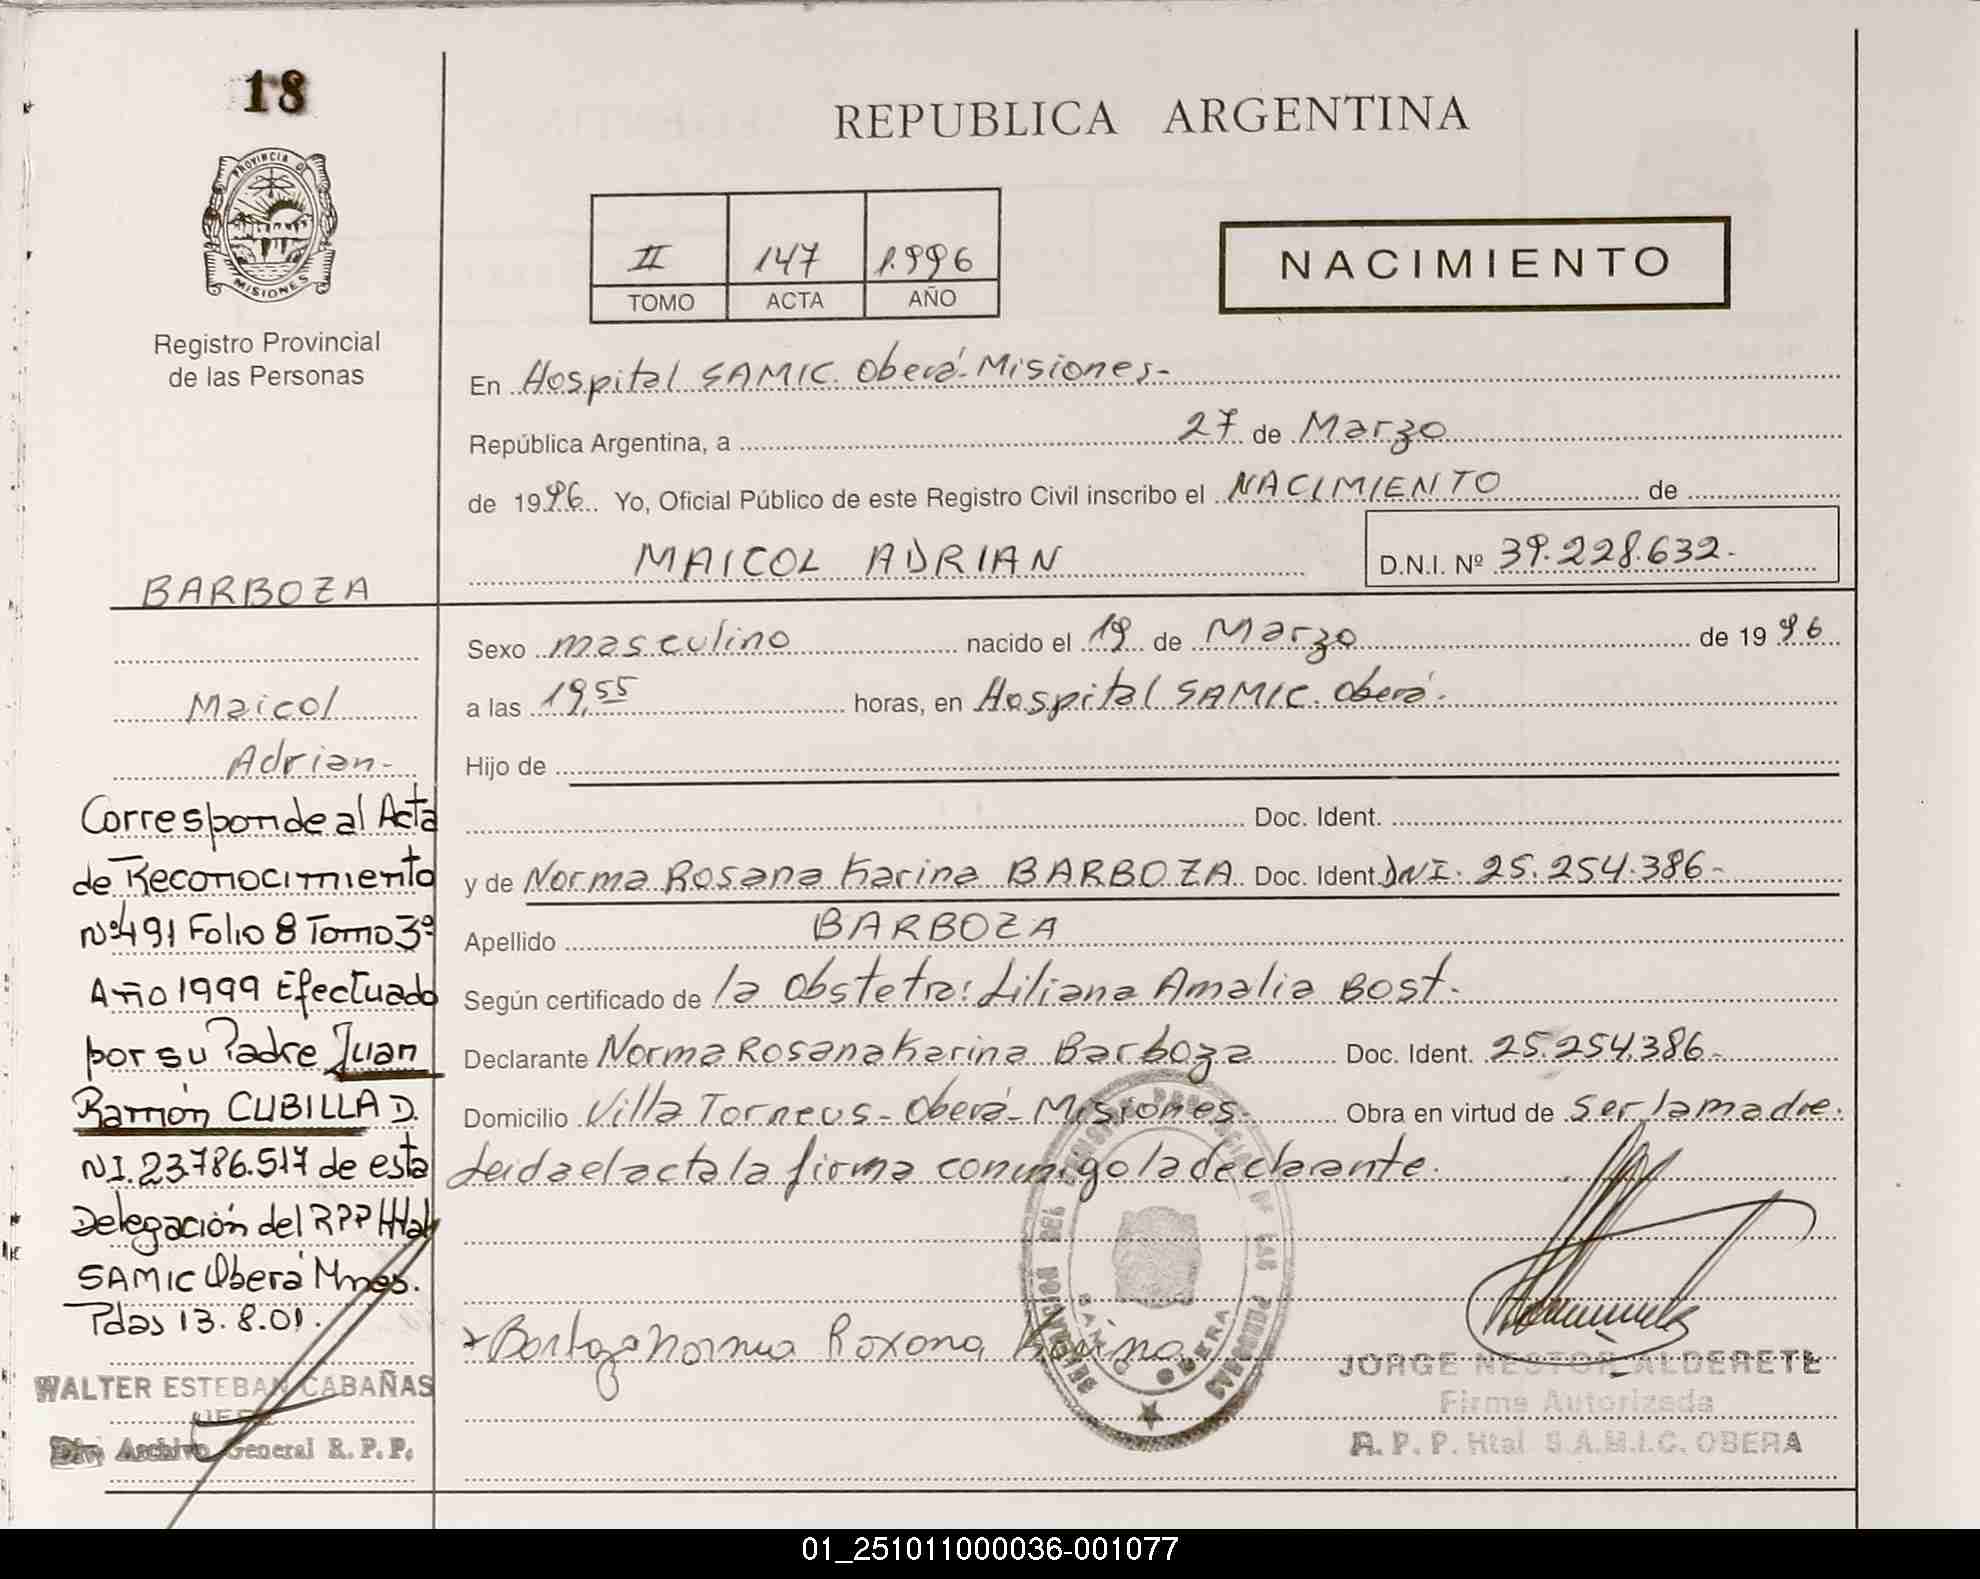 18
PROVINCIA DE
MISIONES
Registro Provincial
de las Personas
REPUBLICA ARGENTINA
II 147 1.996
TOMO ACTA AÑO
NACIMIENTO
En Hospital SAMIC. Oberá-Misiones-
República Argentina, a 27 de Marzo
de 1996. Yo, Oficial Público de este Registro Civil inscribo el NACIMIENTO de
MAICOL ADRIAN D.N.I. Nº 39.228.632.-
BARBOZA
Maicol
Adrian-
Corresponde al Acta
de Reconocimiento
Nº491 Folio 8 Tomo 3º
Año 1999 Efectuado
por su Padre Juan
Ramón CUBILLA D.
NI.23.786.517 de esta
Delegación del RPP Htal
SAMIC Oberá Mnes.
Pdas 13.8.01.
WALTER ESTEBAN CABAÑAS
JEFE
Div. Archivo General R.P.P.
Sexo masculino nacido el 19 de Marzo de 1996
a las 19,55 horas, en Hospital SAMIC. Oberá.
Hijo de
Doc. Ident.
y de Norma Rosana Karina BARBOZA Doc. Ident. DNI. 25.254.386-
Apellido BARBOZA
Según certificado de la Obstetra: Liliana Amalia Bost.
Declarante Norma Rosana Karina Barboza Doc. Ident. 25.254.386-
Domicilio Villa Torneus-Oberá-Misiones. Obra en virtud de ser la madre.
Leida el acta la firma conmigo la declarante.
Barboza Norma Roxana Karina
DELEGACION DEL REGISTRO PROVINCIAL DE LAS PERSONAS
SAMIC OBERA
JORGE NESTOR ALDERETE
Firma Autorizada
R.P.P. Htal S.A.M.I.C. OBERA
01_251011000036-001077